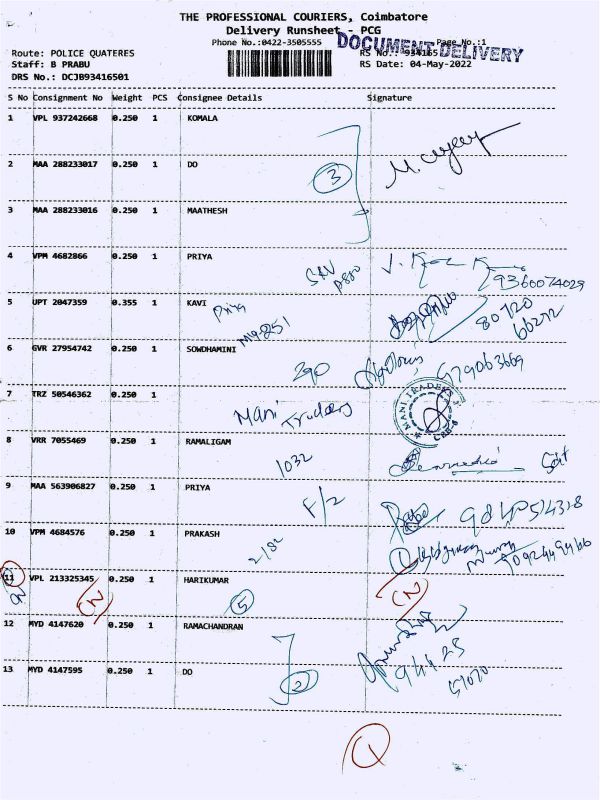 THE PROFESSIONAL COURIERS, Coimbatore
Delivery Runsheet - PCG
Phone No.:0422-3505555 Page No.:1
DOCUMENT DELIVERY
Route: POLICE QUATERES RS No.: 934165
Staff: B PRABU RS Date: 04-May-2022
DRS No.: DCJB93416501
S No Consignment No Weight PCS Consignee Details Signature
1 VPL 937242668 0.250 1 KOMALA
2 MAA 288233017 0.250 1 DO
3
3 MAA 288233016 0.250 1 MAATHESH
4 VPM 4682866 0.250 1 PRIYA
9360074029
5 UPT 2047359 0.355 1 KAVI
Priya
80720
66272
6 GVR 27954742 0.250 1 SOWDHAMINI
290
7 TRZ 50546362 0.250 1
Mani Traders
MANI TRADERS
CBE-6
8 VRR 7055469 0.250 1 RAMALIGAM
1032
9 MAA 563906827 0.250 1 PRIYA
F/2
10 VPM 4684576 0.250 1 PRAKASH
2/82
11 VPL 213325345 0.250 1 HARIKUMAR
5
12 MYD 4147620 0.250 1 RAMACHANDRAN
13 MYD 4147595 0.250 1 DO
2
94425